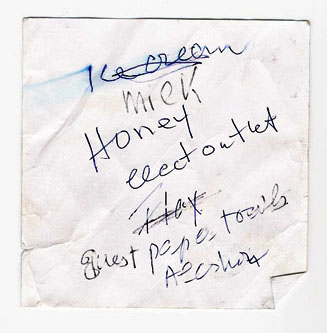 Ice cream
Milk
Honey
elect outlet
Flax
guest paper towels